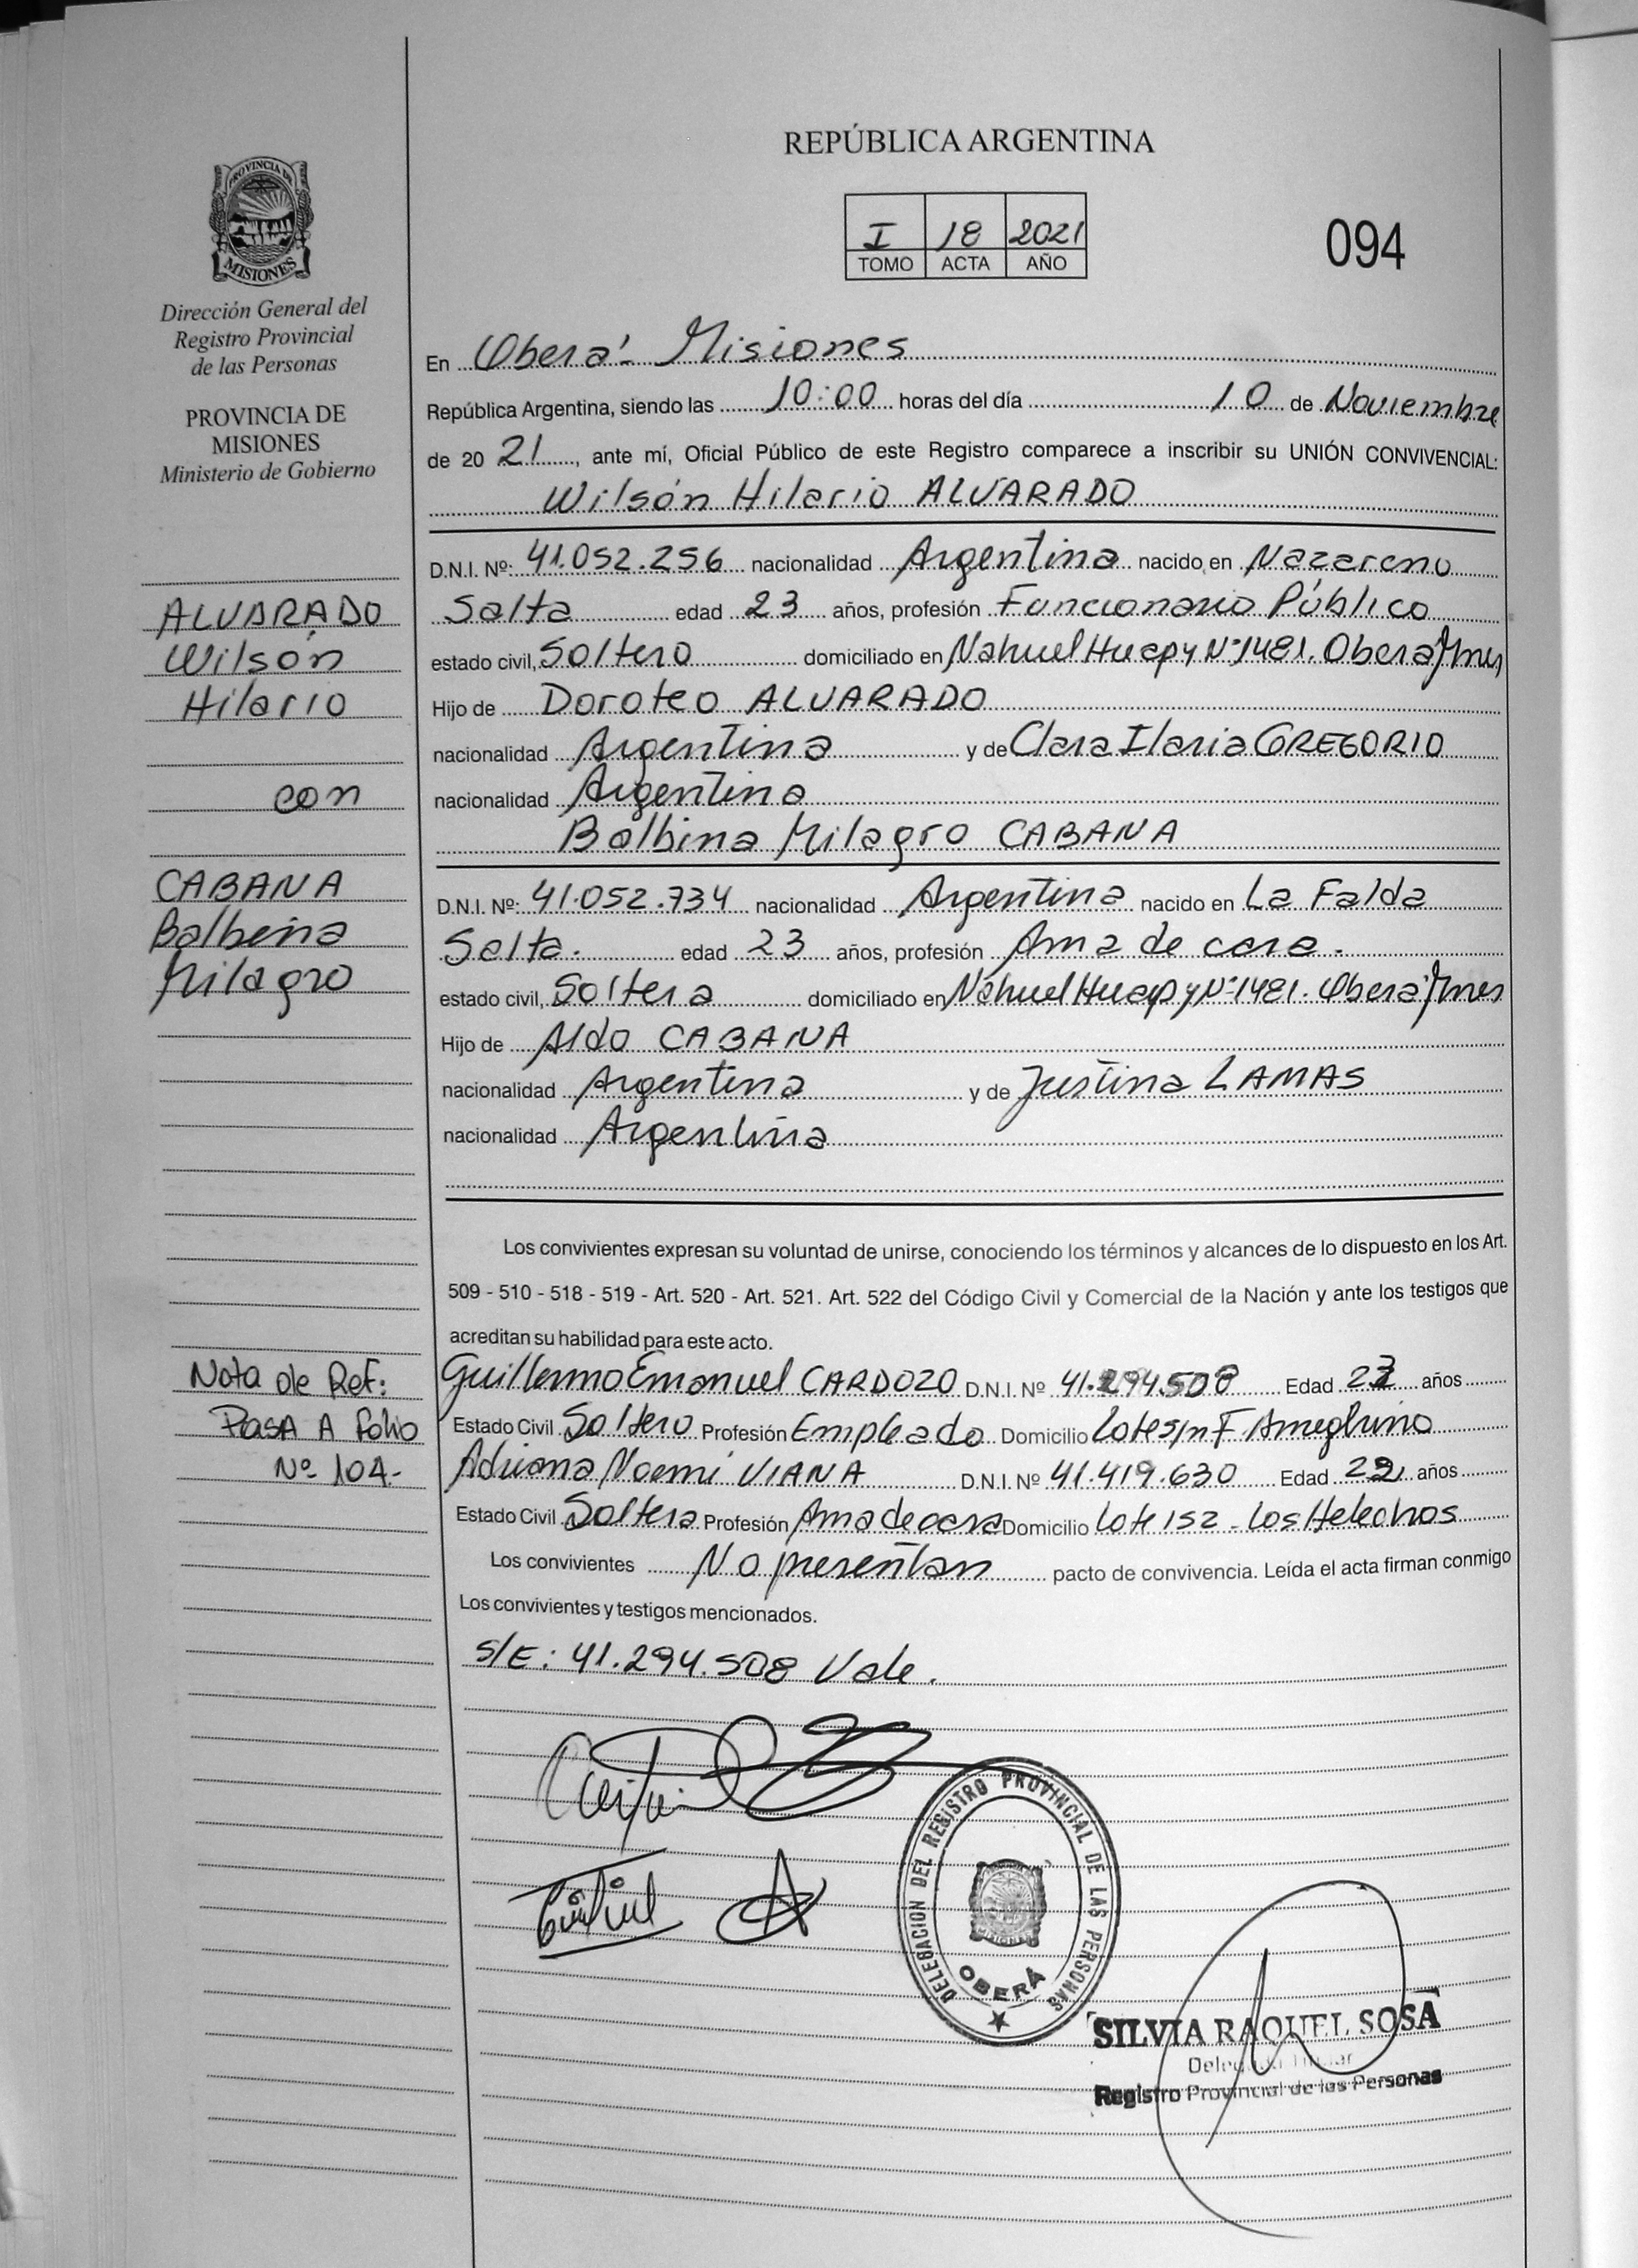 REPÚBLICA ARGENTINA
I 18 2021
TOMO ACTA AÑO
094
PROVINCIA DE
MISIONES
Dirección General del
Registro Provincial
de las Personas
PROVINCIA DE
MISIONES
Ministerio de Gobierno
En Oberá - Misiones
República Argentina, siendo las 10:00 horas del día 10 de Noviembre
de 20 21, ante mí, Oficial Público de este Registro comparece a inscribir su UNIÓN CONVIVENCIAL:
Wilsón Hilario ALVARADO
D.N.I. Nº: 41.052.256 nacionalidad Argentina nacido en Nazareno
Salta edad 23 años, profesión Funcionario Público
estado civil, Soltero domiciliado en Nahuel Huapy Nº 1481. Oberá Mnes
Hijo de Doroteo ALVARADO
nacionalidad Argentina y de Clara Ilaria GREGORIO
nacionalidad Argentina
Balbina Milagro CABANA
D.N.I. Nº: 41.052.734 nacionalidad Argentina nacido en La Falda
Salta. edad 23 años, profesión Ama de casa.
estado civil, Soltera domiciliado en Nahuel Huapy Nº 1481. Oberá Mnes
Hijo de Aldo CABANA
nacionalidad Argentina y de Justina LAMAS
nacionalidad Argentina
ALVARADO
Wilsón
Hilario
con
CABANA
Balbina
Milagro
Los convivientes expresan su voluntad de unirse, conociendo los términos y alcances de lo dispuesto en los Art.
509 - 510 - 518 - 519 - Art. 520 - Art. 521. Art. 522 del Código Civil y Comercial de la Nación y ante los testigos que
acreditan su habilidad para este acto.
Guillermo Emanuel CARDOZO D.N.I. Nº 41.294.508 Edad 23 años
Estado Civil Soltero Profesión Empleado Domicilio Lote s/n F. Ameghino
Adriana Noemí VIANA D.N.I. Nº 41.419.630 Edad 22 años
Estado Civil Soltera Profesión Ama de casa Domicilio Lote 152 - Los Helechos
Los convivientes No presentan pacto de convivencia. Leída el acta firman conmigo
Los convivientes y testigos mencionados.
S/E: 41.294.508 Vale.
Nota de Ref:
Pasa A folio
Nº 104.-
DELEGACION DEL REGISTRO PROVINCIAL DE LAS PERSONAS
OBERÁ
SILVIA RAQUEL SOSA
Registro Provincial de las Personas